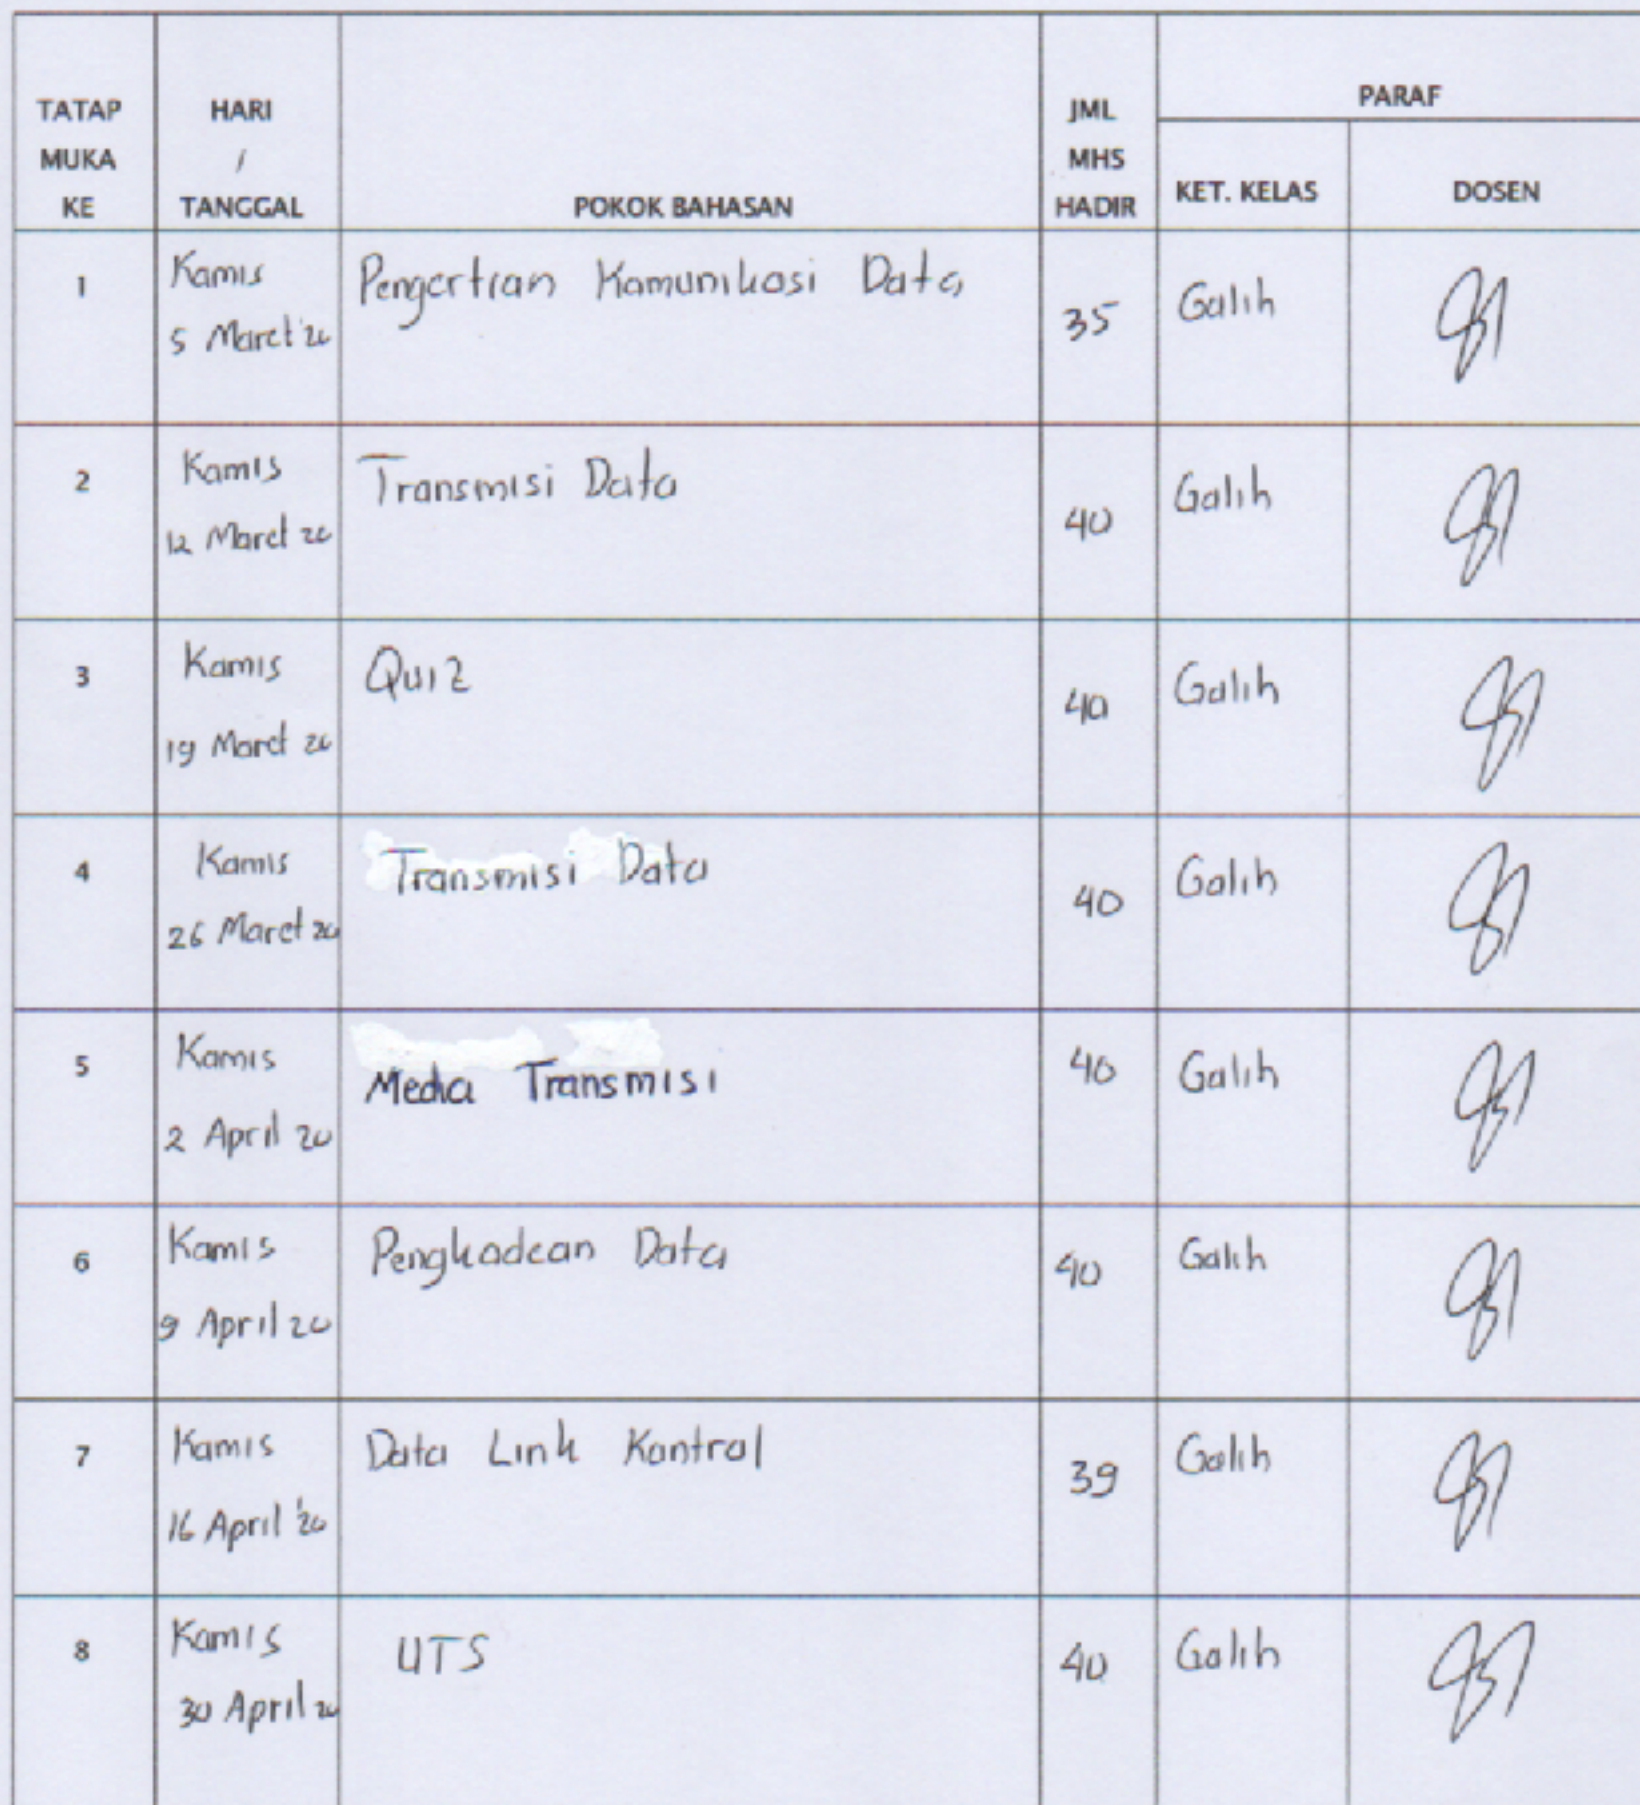 TATAP MUKA KE
HARI / TANGGAL
POKOK BAHASAN
JML MHS HADIR
PARAF
KET. KELAS
DOSEN
1
Kamis
5 Maret '20
Pengertian Komunikasi Data
35
Galih
2
Kamis
12 Maret 20
Transmisi Data
40
Galih
3
Kamis
19 Maret 20
Quiz
40
Galih
4
Kamis
26 Maret 20
Transmisi Data
40
Galih
5
Kamis
2 April 20
Media Transmisi
40
Galih
6
Kamis
9 April 20
Pengkodean Data
40
Galih
7
Kamis
16 April '20
Data Link Kontrol
39
Galih
8
Kamis
30 April 20
UTS
40
Galih